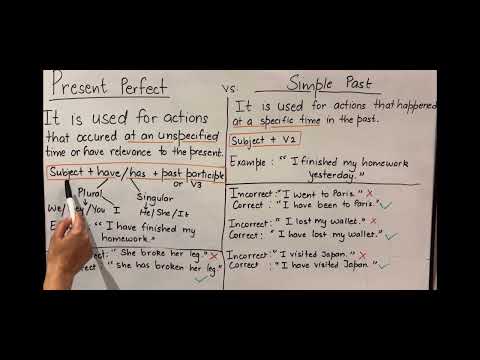 Present Perfect
vs.
Simple Past
It is used for actions
that occured at an unspecified
time or have relevance to the present.
Subject + have/has + past participle
or V3
Plural
Singular
We/ /You I
He/She/It
"I have finished my
homework."
"She broke her leg." ×
"She has broken her leg." ✓
It is used for actions that happened
at a specific time in the past.
Subject + V2
Example : "I finished my homework
yesterday."
Incorrect : "I went to Paris." ×
Correct : "I have been to Paris." ✓
Incorrect : "I lost my wallet." ×
Correct : "I have lost my wallet." ✓
Incorrect : "I visited Japan." ×
Correct : "I have visited Japan." ✓